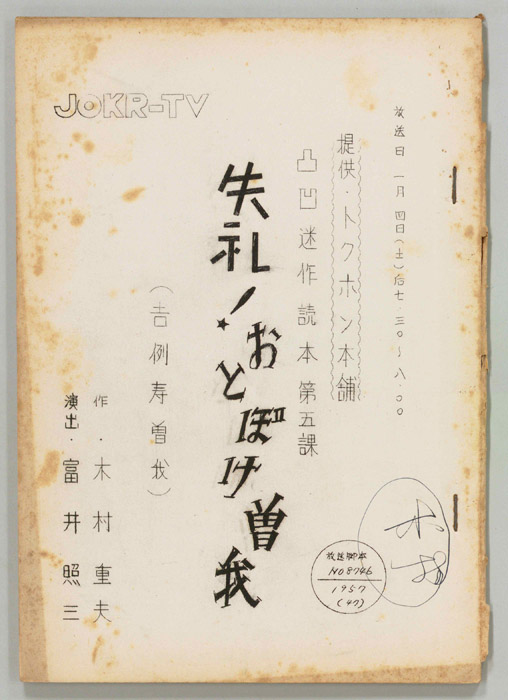 JOKR-TV
放送日 一月四日(土)后七・三〇～八・〇〇
提供・トクホン本舗
凸凹迷作読本第五課
失礼！おとぼけ曽我
(吉例寿曽我)
作・木村重夫
演出・富井照三
放送脚本
NO8746
1957
(47)